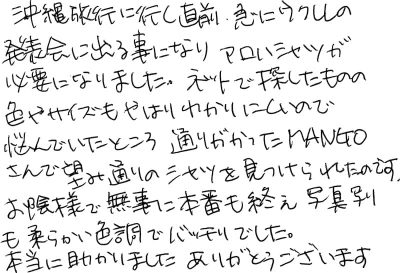 沖縄旅行に行く直前、急にウクレレの
発表会に出る事になり アロハシャツが
必要になりました。ネットで探したものの
色やサイズもやはりわかりにくいので
悩んでいたところ 通りがかったMANGO
さんで望み通りのシャツを見つけられたのです。
お陰様で無事に本番も終え 写真写り
も柔らかい色調でバッチリでした。
本当に助かりました ありがとうございます